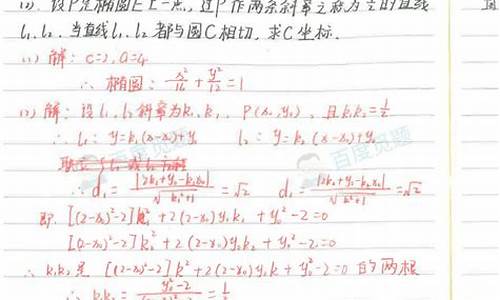 (2). 设P是椭圆E上一点,过P作两条斜率之积为½的直线
l₁, l₂. 当直线l₁, l₂都与圆C相切, 求C坐标.
(1) 解: c=2, a=4
∴ 椭圆: x²/16 + y²/12 = 1
(2) 解: 设l₁, l₂斜率为k₁, k₂, P(x₀, y₀), 且k₁k₂=½
∴ l₁: y=k₁(x-x₀)+y₀ l₂: y=k₂(x-x₀)+y₀
∴ d₁ = |2k₁+y₀-k₁x₀|/√(k₁²+1) = √2 d₂ = |2k₂+y₀-k₂x₀|/√(k₂²+1) = √2
即 [(2-x₀)²-2]k₁²+2(2-x₀)y₀k₁+y₀²-2=0
[(2-x₀)²-2]k₂²+2(2-x₀)y₀k₂+y₀²-2=0
∴ k₁k₂是 [(2-x₀)²-2]k²+2(2-x₀)y₀k+y₀²-2=0 的两根
百度觅题
百度觅题